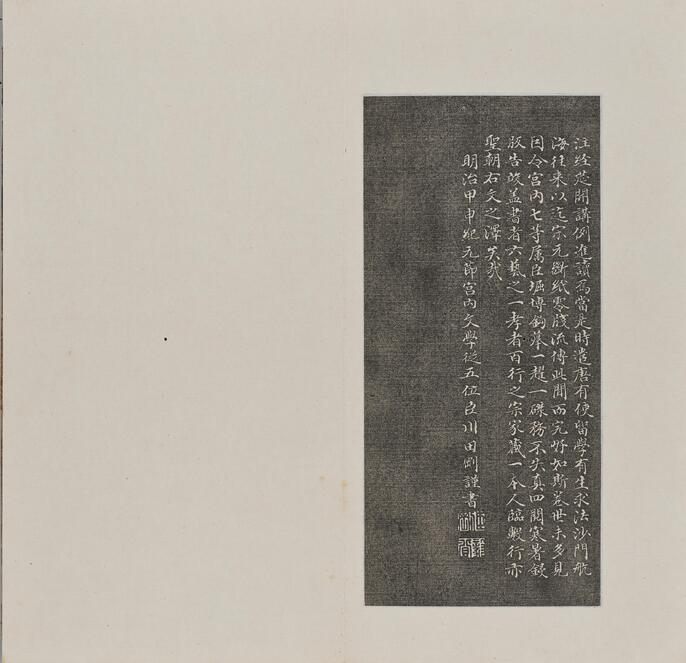 注經筵開講例進讀焉當是時遣唐有使留學有生求法沙門航
海往来以迄宋元斷紙零牋流傳此間而完好如斯卷世未多見
因令宮内七等属臣堀博鉤摹一趯一磔務不失真四閲寒暑鋟
版告竣蓋書者六藝之一孝者百行之宗家蔵一本人臨數行亦
聖朝右文之澤矣哉
明治甲申紀元節宮内文學從五位臣川田剛謹書